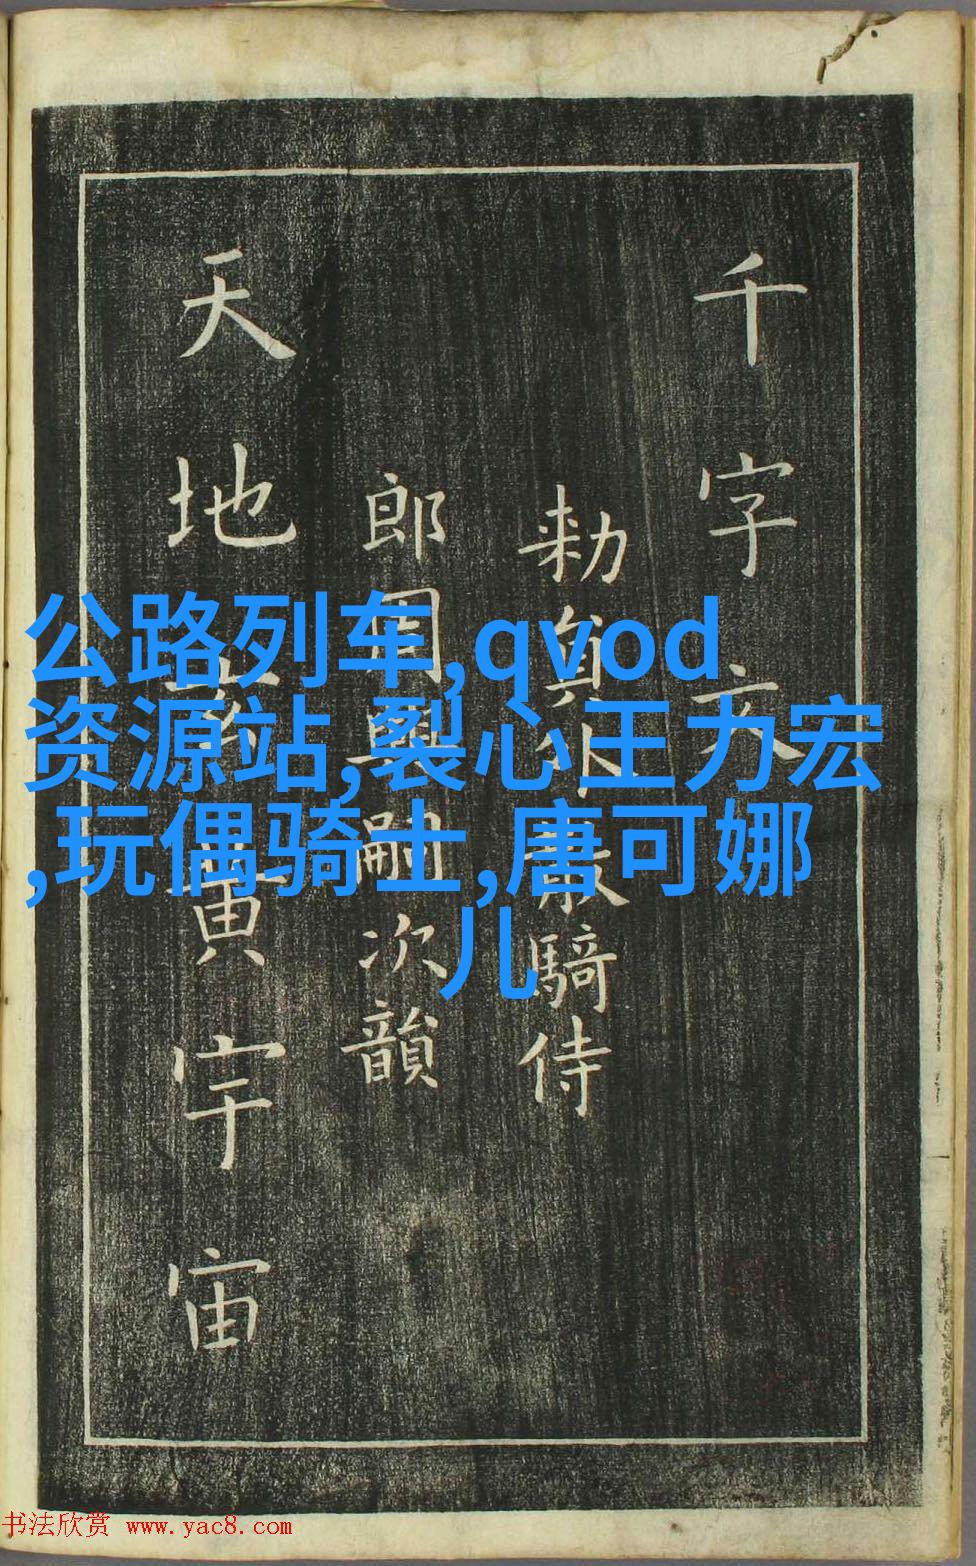 千字文
勑員外散騎侍
郎周興嗣次韻
天地玄黃宇宙
公路列车,qvod
资源站,裂心王力宏
,玩偶骑士,唐可娜
儿
书法欣赏 www.yac8.com